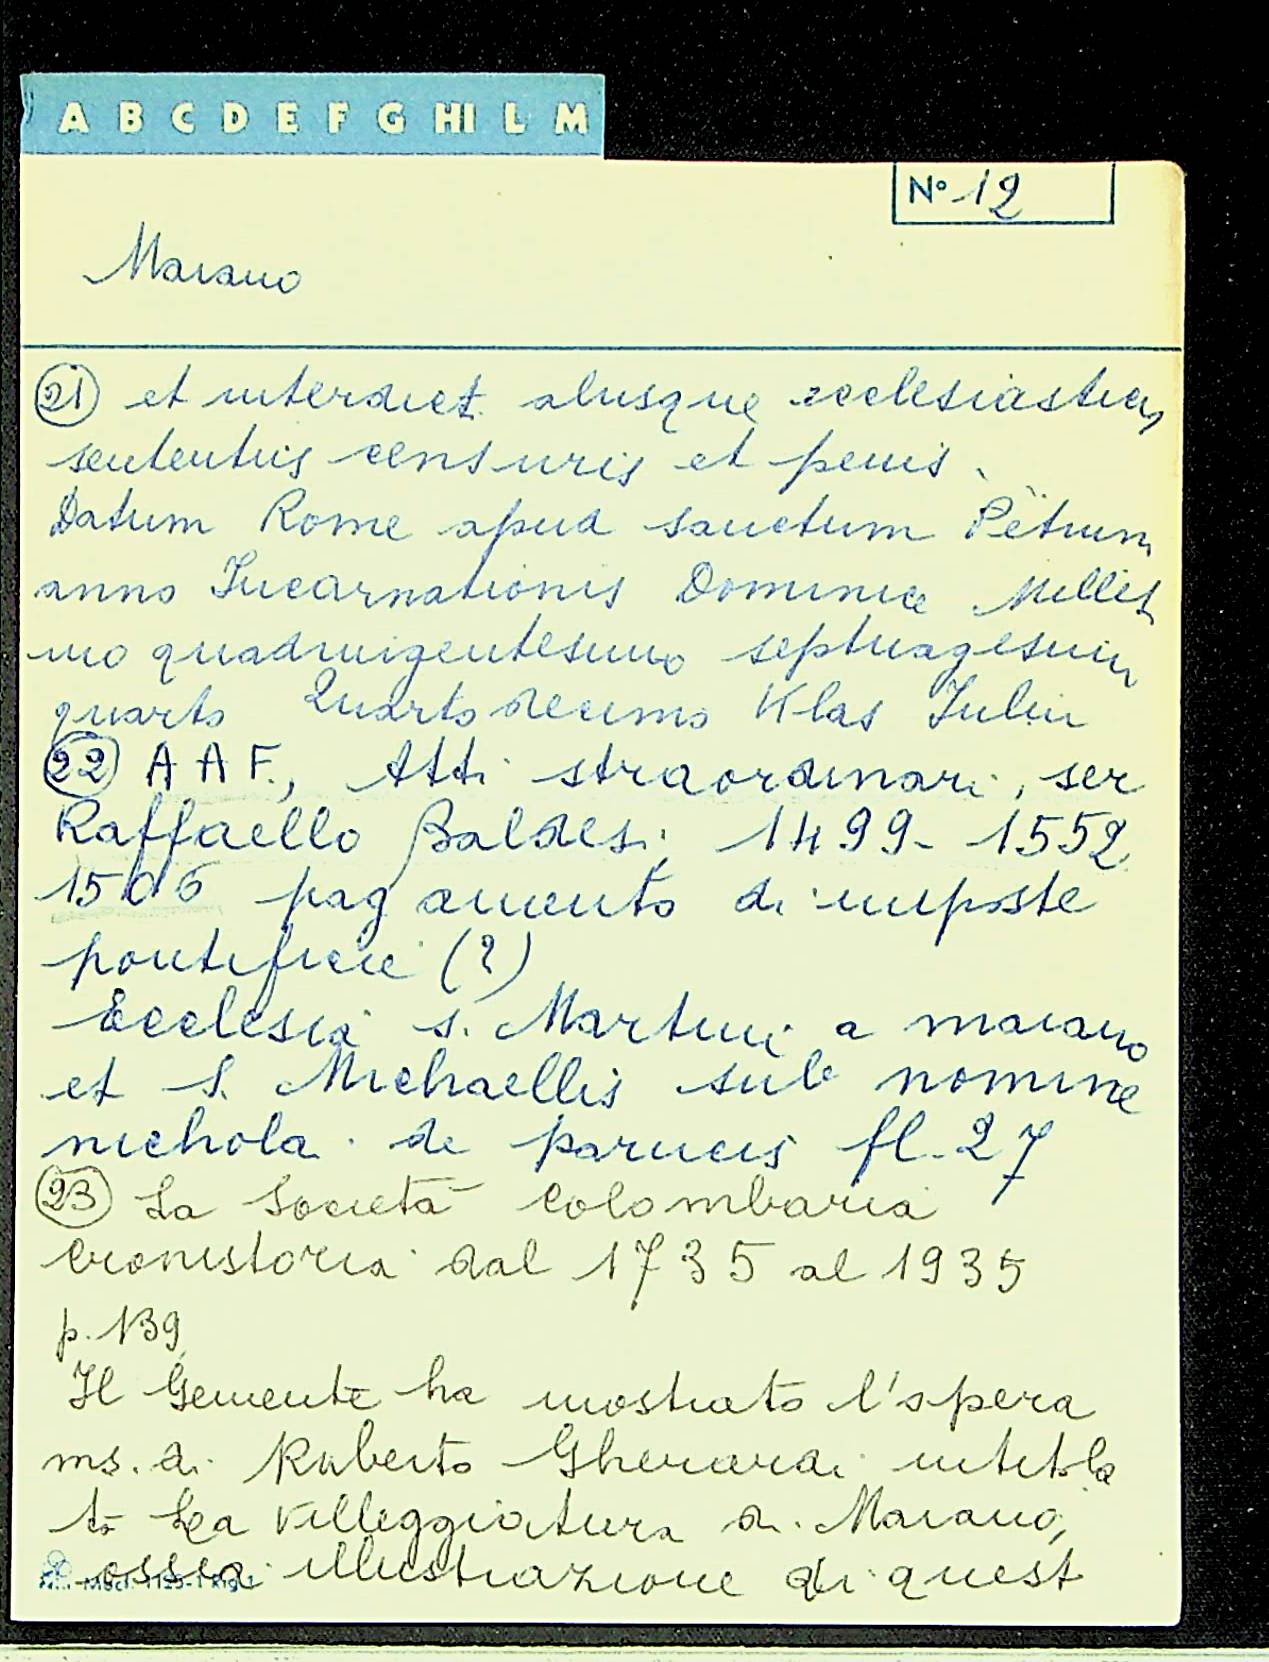 A B C D E F G HI L M
N° 12
Maiano
(21) et interdict. aliisque ecclesiastics
sententiis censuris et penis.
Datum Rome apud sanctum Petrum
anno Incarnationis Dominice Milles
mo quadruigentesimo septuagesimo
quarto Quartodecimo Klas Iulii
(22) A A F., Atti straordinari, ser
Raffaello Baldesi; 1499-1552
1506 pagamento di imposte
pontificie (?)
Ecclesia s. Martini a maiano
et S. Michaellis sub nomine
nichola de parucis fl. 27
(23) La Società Colombaria
cronistoria dal 1735 al 1935
p. 139
Il Gemente ha mostrato l'opera
ms. di Ruberto Gherardi intitola
to La villeggiatura di Maiano,
ossia illustrazione di quest